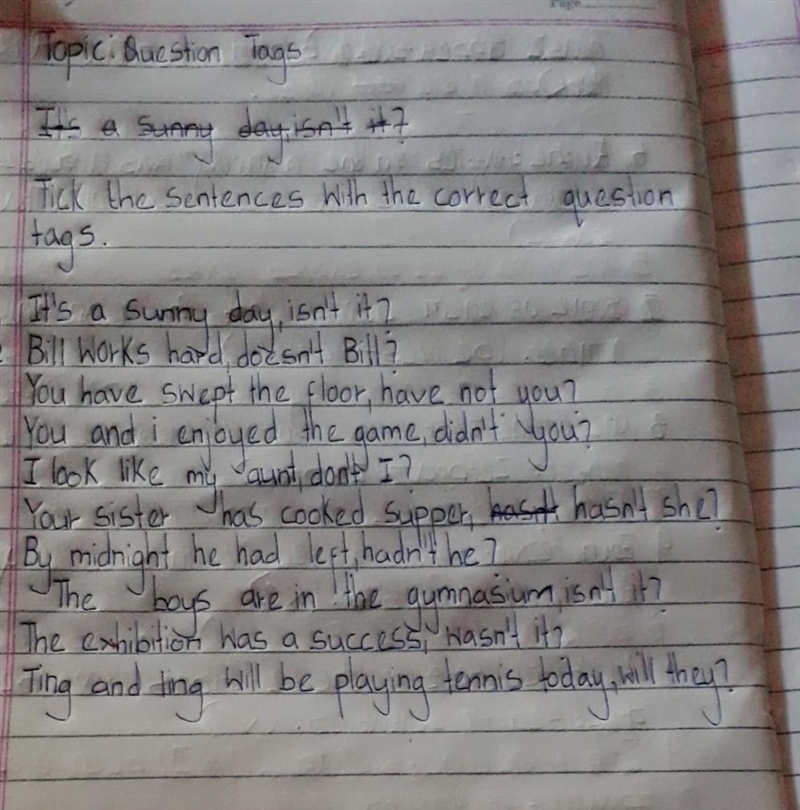 Page
Topic: Question Tags
It's a sunny day, isn't it?
Tick the sentences with the correct question
tags.
It's a sunny day, isn't it?
Bill works hard, doesn't Bill?
You have swept the floor, have not you?
You and i enjoyed the game, didn't you?
I look like my aunt, don't I?
Your sister has cooked supper, hasn't hasn't she?
By midnight he had left, hadn't he?
The boys are in the gymnasium, isn't it?
The exhibition was a success, wasn't it?
Ting and ting will be playing tennis today, will they?